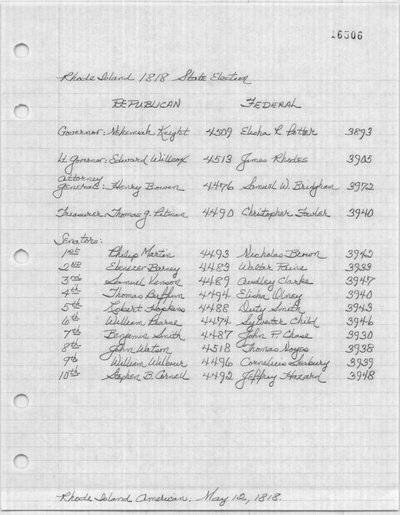 16506
Rhode Island 1818 State Election
REPUBLICAN FEDERAL
Governor: Nehemiah Knight 4509 Elisha R. Potter 3893
Lt. Governor: Edward Willcox 4513 James Rhodes 3905
Attorney
General: Henry Bowen 4476 Samuel W. Bridgham 3972
Treasurer: Thomas G. Pitman 4490 Christopher Fowler 3940
Senators:
1st Philip Martin 4493 Nicholas Brown 3942
2nd Ebenezer Barney 4483 Walter Paine 3933
3rd Samuel 4489 Audley Clarke 3947
4th Thomas Buffum 4494 Elisha Olney 3940
5th Robert Hopkins 4488 Duty Smith 3943
6th William 4474 Sylvester Child 3946
7th Benjamin Smith 4487 John P. Chase 3930
8th John Watson 4518 Thomas Noyes 3938
9th William Wilbour 4496 Cornelius Seabury 3939
10th Stephen B. Cornell 4492 Jeffrey Hazard 3948
Rhode Island American. May 12, 1818.